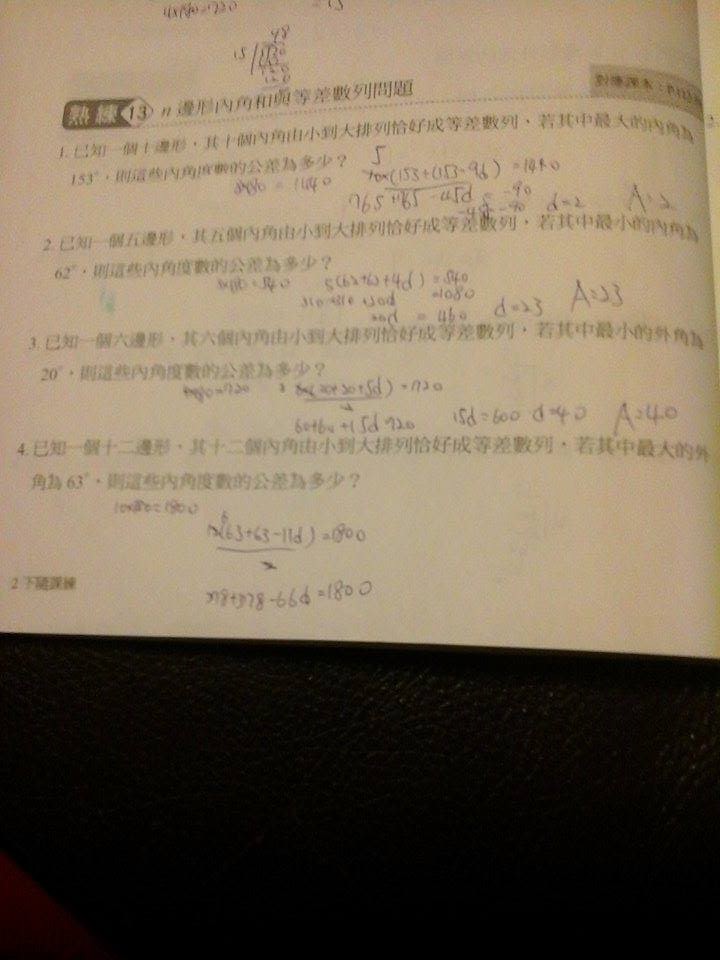 4×180=720 =15
48
15
熟練 13 n 邊形內角和與等差數列問題
對應課本：P.113
1. 已知一個十邊形，其十個內角由小到大排列恰好成等差數列，若其中最大的內角為
153°，則這些內角度數的公差為多少？
5
(153+(153-9d)=1440
8×180=1440
765+765-45d
-90
-45d=-90 d=2 A=2
2. 已知一個五邊形，其五個內角由小到大排列恰好成等差數列，若其中最小的內角為
62°，則這些內角度數的公差為多少？
3×180=540 5(62+62+4d)=540
310+310+20d =1080
20d=460 d=23 A=23
3. 已知一個六邊形，其六個內角由小到大排列恰好成等差數列，若其中最小的外角為
20°，則這些內角度數的公差為多少？
4×180=720 (20+20+5d)=720
2
60+60+15d=720 15d=600 d=40 A=40
4. 已知一個十二邊形，其十二個內角由小到大排列恰好成等差數列，若其中最大的外
角為 63°，則這些內角度數的公差為多少？
10×180=1800
6
12(63+63-11d)=1800
2
378+378-66d=1800
2下隨課練